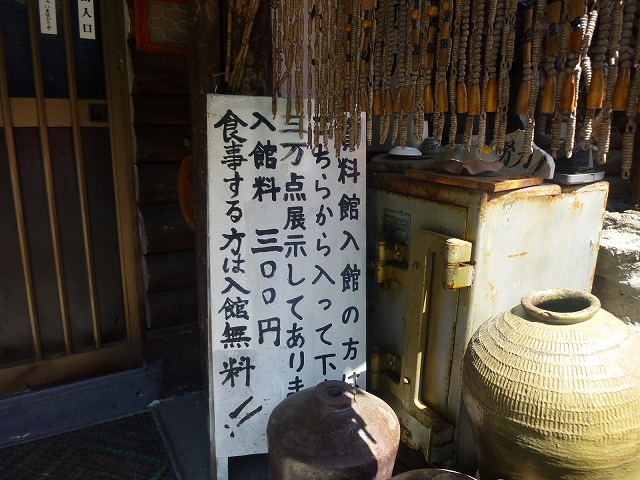 資料館入館の方は
こちらから入って下
三万点展示してありま
入館料 三〇〇円
食事する方は入館無料!!
入口